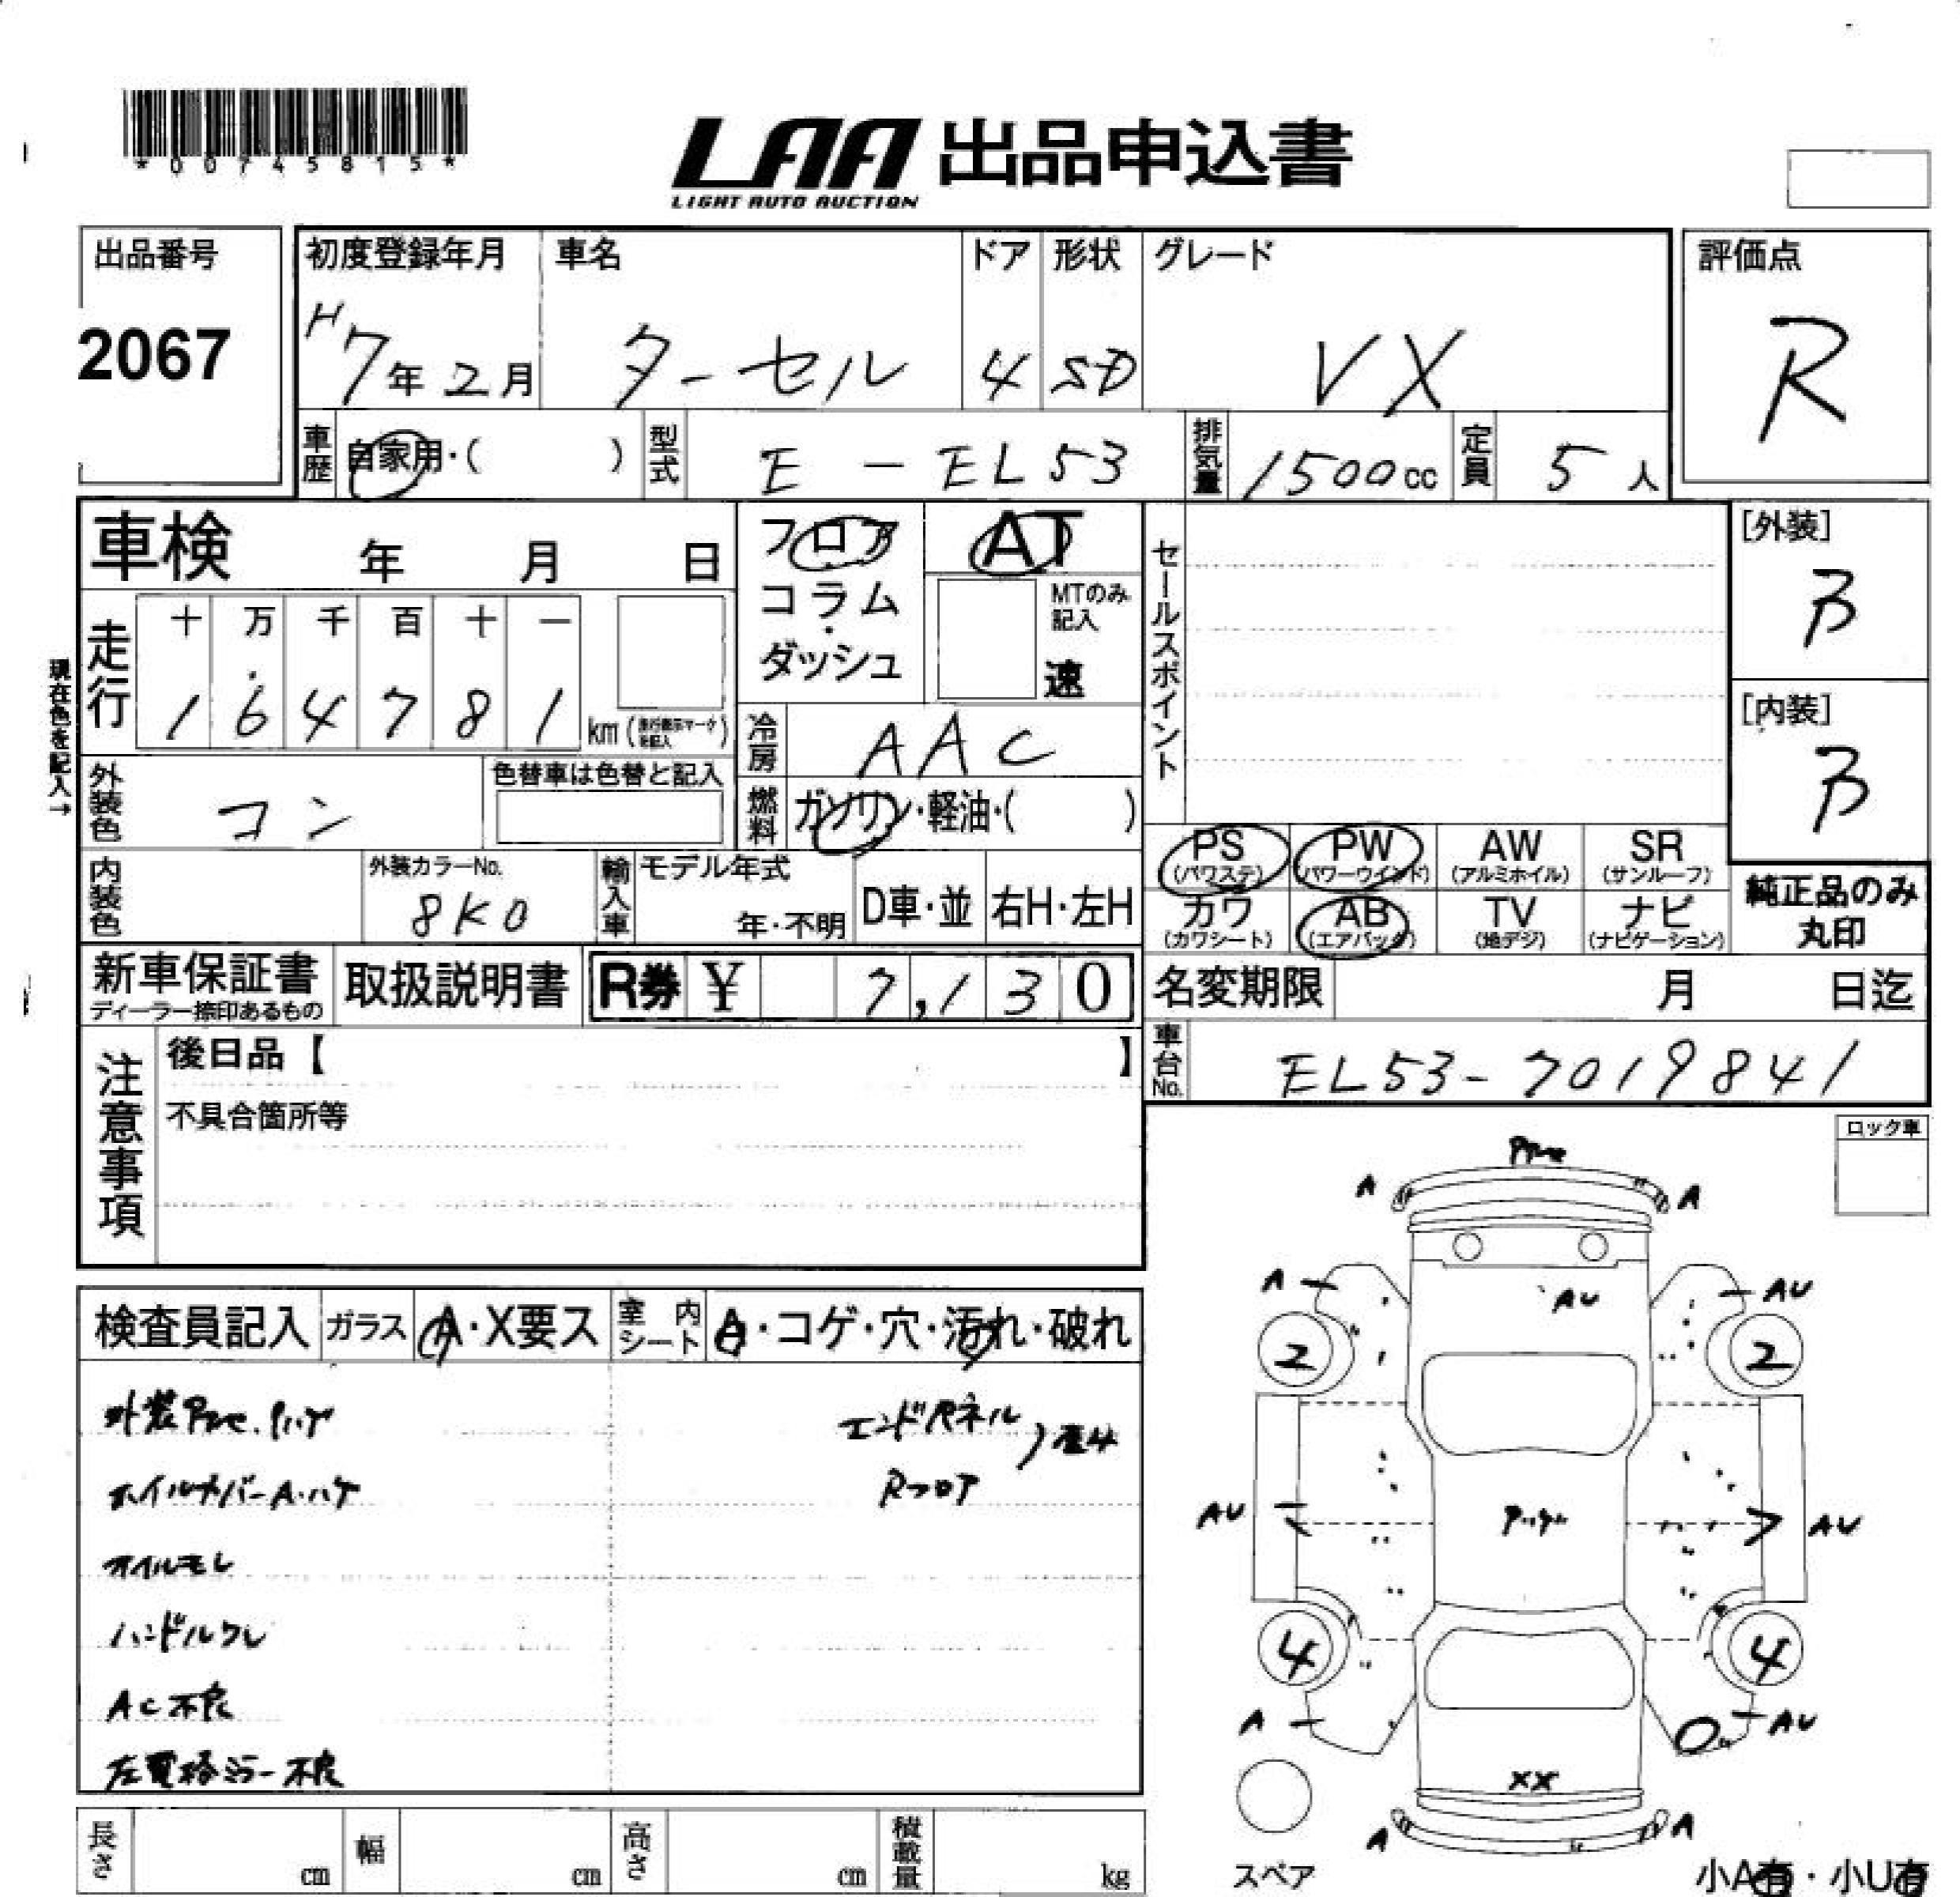 *00745815*
LAA 出品申込書
LIGHT AUTO AUCTION
出品番号
2067
初度登録年月
H7年2月
車名
ターセル
ドア
4
形状
SD
グレード
VX
評価点
R
車歴
自家用・( )
型式
E-EL53
排気量
1500cc
定員
5人
車検 年 月 日
フロア
コラム
・
ダッシュ
AT
MTのみ
記入
速
セールスポイント
[外装]
B
[内装]
B
現在色を記入→
走行
十 万 千 百 十 一
1 6 4 7 8 1
km
冷房
AAC
燃料
ガソリン・軽油・( )
外装色
コン
色替車は色替と記入
内装色
外装カラーNo.
8K0
輸入車
モデル年式
年・不明
D車・並
右H・左H
PS
(パワステ)
PW
(パワーウインド)
AW
(アルミホイル)
SR
(サンルーフ)
カワ
(カワシート)
AB
(エアバッグ)
TV
(地デジ)
ナビ
(ナビゲーション)
純正品のみ
丸印
新車保証書
ディーラー捺印あるもの
取扱説明書
R券 ¥ 7,130
名変期限 月 日迄
車台No.
EL53-7019841
注意事項
後日品【 】
不具合箇所等
ロック車
検査員記入
ガラス
A・X要ス
室内
シート
A・コゲ・穴・汚れ・破れ
ホイルカバーA・ハゲ
オイルモレ
ハンドルスレ
AC不良
左電格ミラー不良
エンドパネル
Rフロア
A
A
A
AU
AU
2
2
AU
AU
4
4
A
AU
XX
A
A
スペア
小A有・小U有
長さ cm
幅 cm
高さ cm
積載量 kg